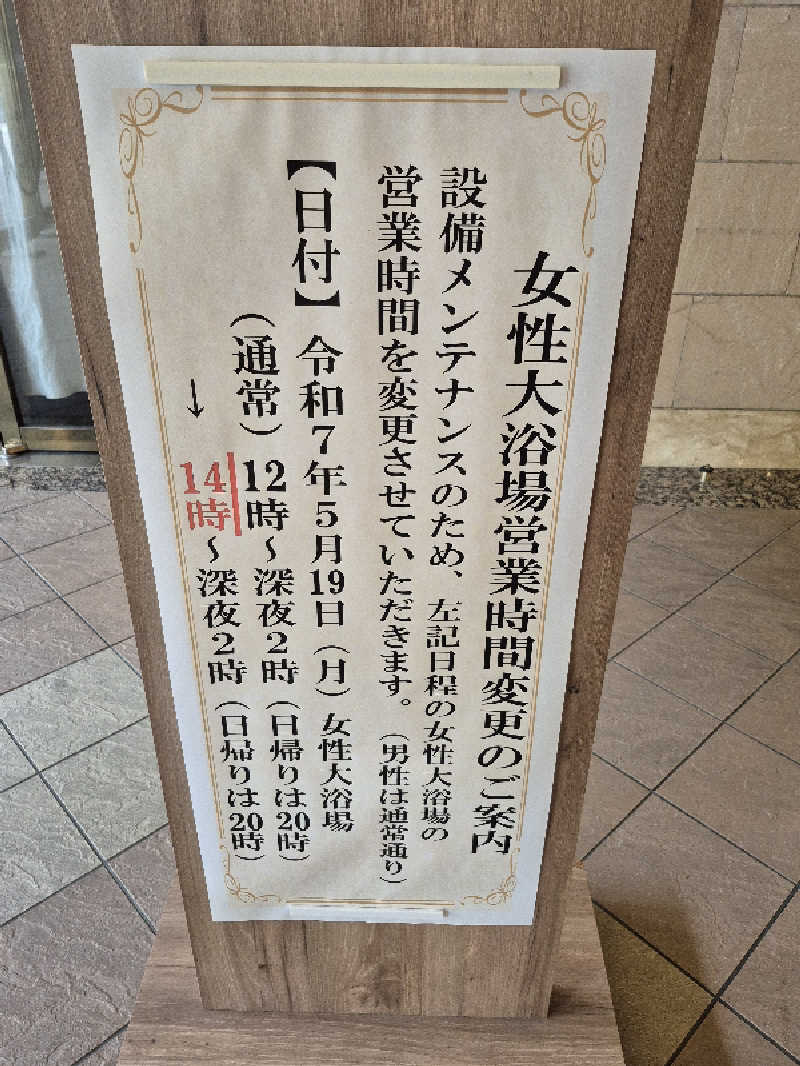 女性大浴場営業時間変更のご案内
設備メンテナンスのため、左記日程の女性大浴場の
営業時間を変更させていただきます。（男性は通常通り）
【日付】令和７年５月19日（月）女性大浴場
（通常）12時～深夜２時（日帰りは20時）
→14時～深夜２時（日帰りは20時）